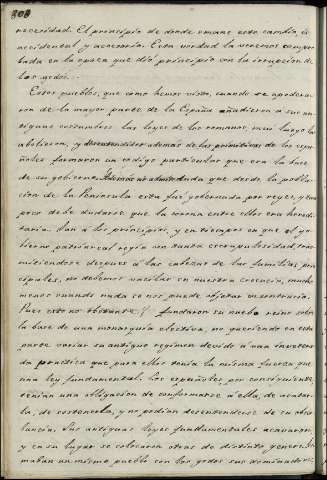 808
necesidad. El principio de donde emana este cambio, es
accidental y accesorio. Esta verdad la veremos compro
bada en la epoca que dió principio con la irrupcion de
los godos.
Estos pueblos, que como hemos visto, cuando se apodera-
ron de la mayor parte de la España añadieron á sus an-
tiguas costumbres las leyes de los romanos, mui luego la
abolieron, y además de las primitivas de los espa-
ñoles formaron un codigo particular que era la base
de su gobierno. duda que desde la pobla-
cion de la Peninsula esta fué gobernada por reyes, y tam
poco debe dudarse que la corona entre ellos era heredi-
taria. Aun á los principios, y en tiempos en que el go-
bierno patriarcal regia con tanta escrupulosidad, tras-
mitiendose despues á las cabezas de las familias prin
cipales, no debemos vacilar en nuestra creencia, mucho
menos cuando nada se nos puede objetar en contrario.
Pues esto no obstante, fundaron su nuebo reino sobre
la base de una monarquia electiva, no queriendo en esta
parte variar su antiguo regimen devido á una invetera
da practica que para ellos tenia la misma fuerza que
una ley fundamental. Los españoles por consiguiente
tenian una obligacion de conformarse á ella, de acatar-
la, de sostenerla, y no podian desentenderse de su obser
vancia. Sus antiguas leyes fundamentales acabaron,
y en su lugar se colocaron otras de distinto genero. For
maban un mismo pueblo con los godos sus dominadores